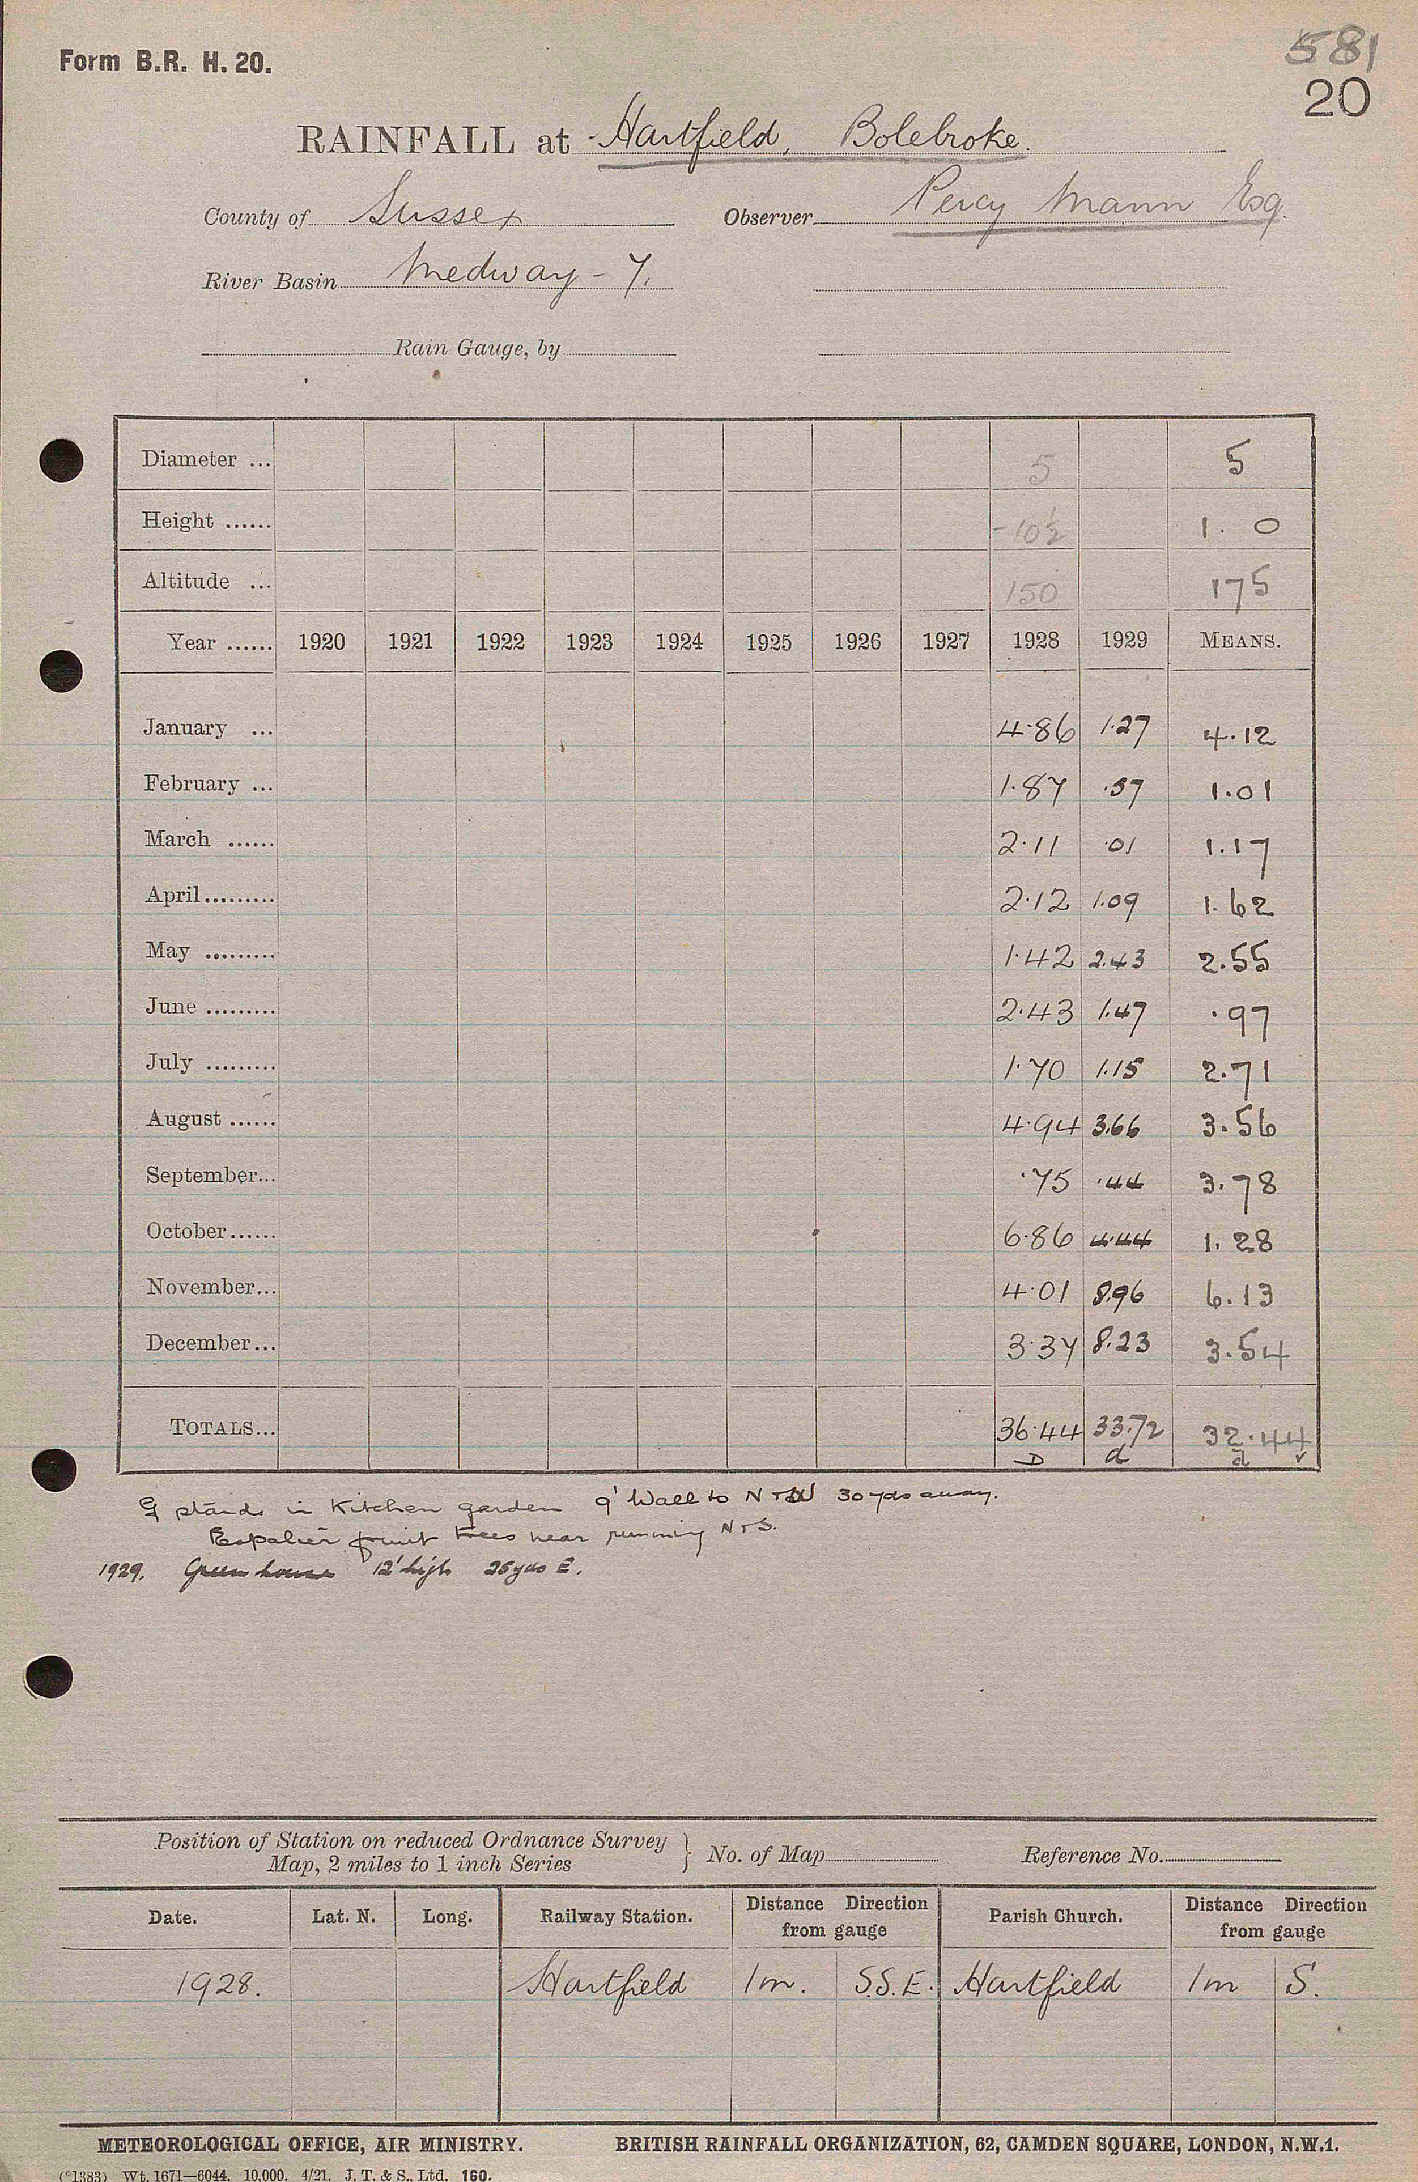 Form B.R. H. 20.
581
20
RAINFALL at Hartfield, Bolebroke.
County of Sussex Observer Percy Mann Esq.
River Basin Medway - 7.
Rain Gauge, by
Diameter ... 5 5
Height ...... -10½ 1. 0
Altitude ... 150 175
Year ...... 1920 1921 1922 1923 1924 1925 1926 1927 1928 1929 MEANS.
January ... 4.86 1.27 4.12
February ... 1.87 .57 1.01
March ...... 2.11 .01 1.17
April......... 2.12 1.09 1.62
May ......... 1.42 2.43 2.55
June ......... 2.43 1.47 .97
July ......... 1.70 1.15 2.71
August ...... 4.94 3.66 3.56
September... .75 .44 3.78
October...... 6.86 4.44 1.28
November... 4.01 8.96 6.13
December... 3.37 8.23 3.54
TOTALS... 36.44 33.72 32.44
D d d v
G stands in Kitchen garden 9' Wall to N + W 30 yds away.
Espalier fruit trees near running N + S.
1929. Green house 12' high 25 yds E.
Position of Station on reduced Ordnance Survey
Map, 2 miles to 1 inch Series } No. of Map Reference No.
Date. Lat. N. Long. Railway Station. Distance Direction from gauge Parish Church. Distance Direction from gauge
1928. Hartfield 1m. S.S.E. Hartfield 1m S.
METEOROLOGICAL OFFICE, AIR MINISTRY. BRITISH RAINFALL ORGANIZATION, 62, CAMDEN SQUARE, LONDON, N.W.1.
(*1383) Wt. 1671—6044. 10,000. 4/21. J. T. & S., Ltd. 160.